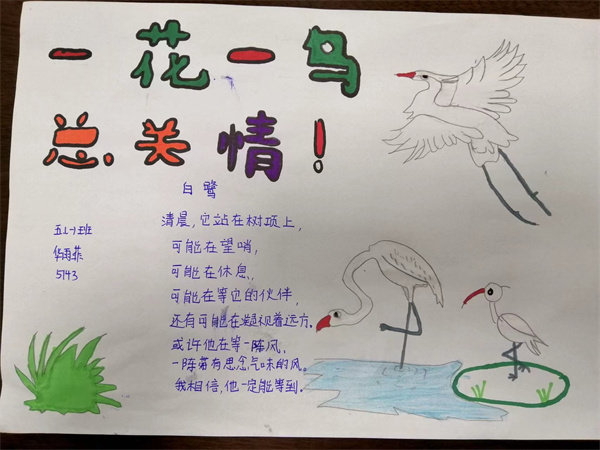 一花一鸟
总关情！
白鹭
五(1)班
华雨菲
5143
清晨，它站在树顶上，
可能在望哨，
可能在休息，
可能在等它的伙伴，
还有可能在凝视着远方。
或许他在等一阵风，
一阵带有思念气味的风。
我相信，他一定能等到.